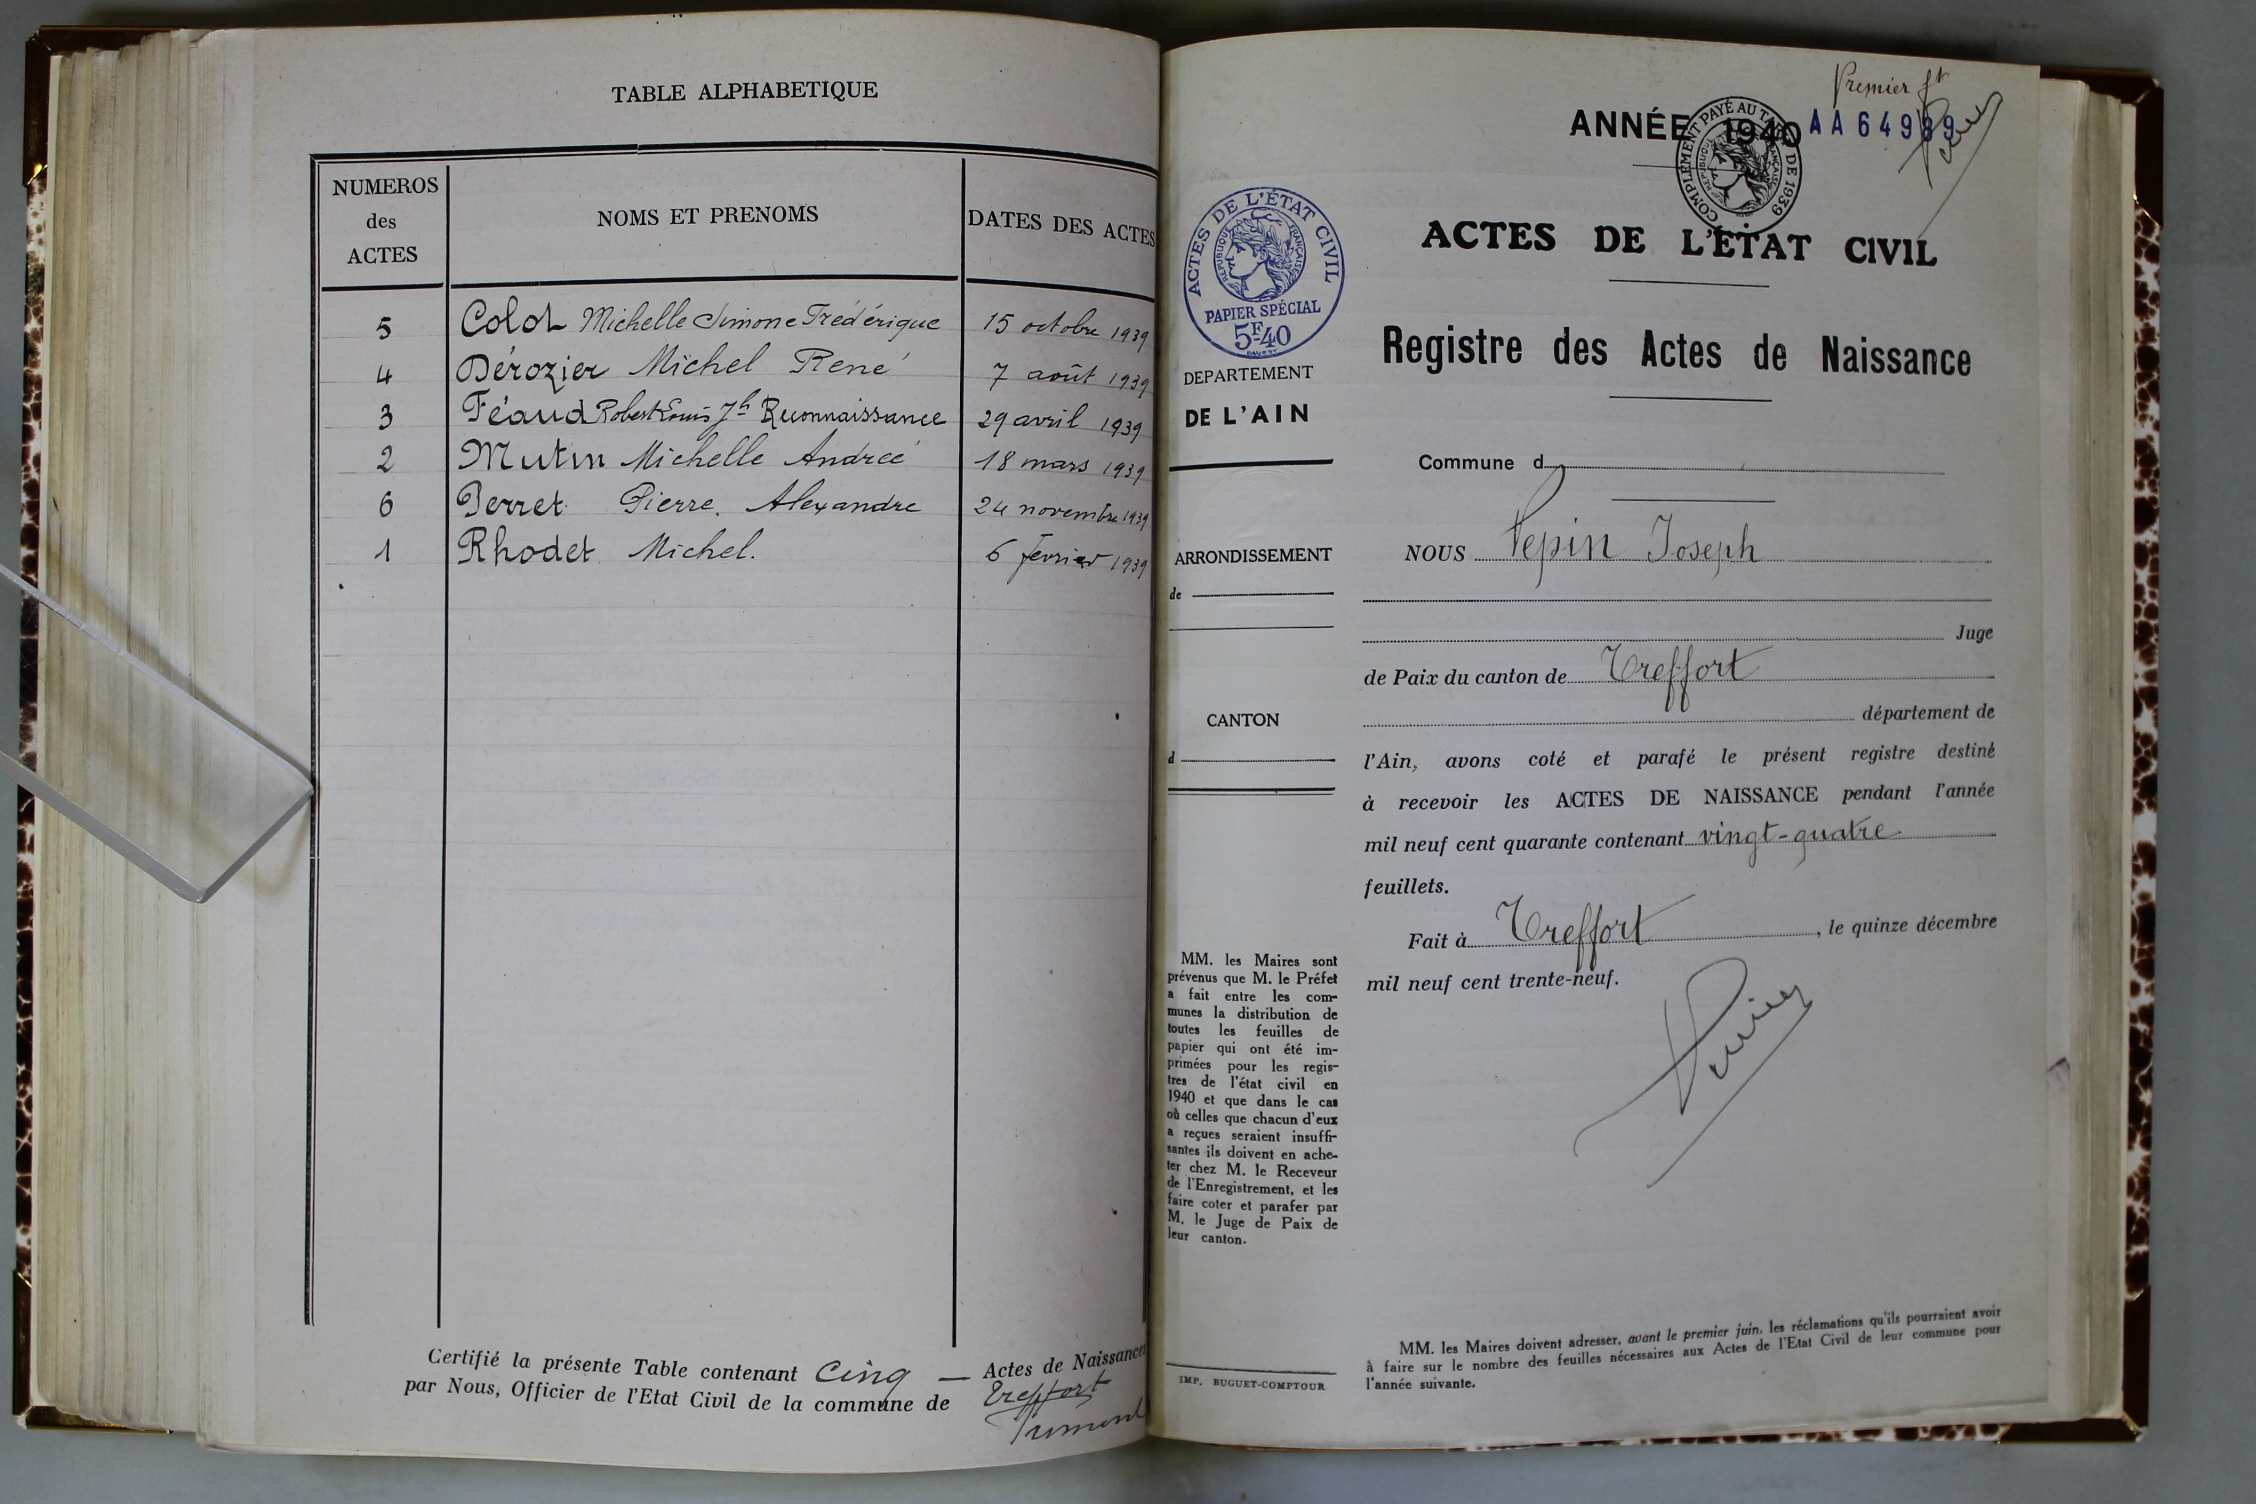 TABLE ALPHABETIQUE
NUMEROS des ACTES NOMS ET PRENOMS DATES DES ACTES
5 Colot Michelle Simone Frédérique 15 octobre 1939
4 Dérozier Michel René 7 août 1939
3 Féaud Robert Louis Jh Reconnaissance 29 avril 1939
2 Mutin Michelle Andrée 18 mars 1939
6 Perret Pierre Alexandre 24 novembre 1939
1 Rhodet Michel. 6 février 1939
Certifié la présente Table contenant Cinq — Actes de Naissances
par Nous, Officier de l'Etat Civil de la commune de Treffort
Premier ft
ANNÉE 1940 AA 64989
COMPLÉMENT PAYÉ AU TARIF DE 1939
RÉPUBLIQUE FRANÇAISE
ACTES DE L'ÉTAT CIVIL
RÉPUBLIQUE FRANÇAISE
PAPIER SPÉCIAL
5F40
DEPARTEMENT
DE L'AIN
ARRONDISSEMENT
de
CANTON
d
MM. les Maires sont
prévenus que M. le Préfet
a fait entre les com-
munes la distribution de
toutes les feuilles de
papier qui ont été im-
primées pour les regis-
tres de l'état civil en
1940 et que dans le cas
où celles que chacun d'eux
a reçues seraient insuffi-
santes ils doivent en ache-
ter chez M. le Receveur
de l'Enregistrement, et les
faire coter et parafer par
M. le Juge de Paix de
leur canton.
IMP. BUGUET-COMPTOUR
ACTES DE L'ETAT CIVIL
Registre des Actes de Naissance
Commune d
NOUS Pépin Joseph
Juge
de Paix du canton de Treffort
département de
l'Ain, avons coté et parafé le présent registre destiné
à recevoir les ACTES DE NAISSANCE pendant l'année
mil neuf cent quarante contenant vingt-quatre
feuillets.
Fait à Treffort, le quinze décembre
mil neuf cent trente-neuf.
MM. les Maires doivent adresser, avant le premier juin, les réclamations qu'ils pourraient avoir
à faire sur le nombre des feuilles nécessaires aux Actes de l'Etat Civil de leur commune pour
l'année suivante.